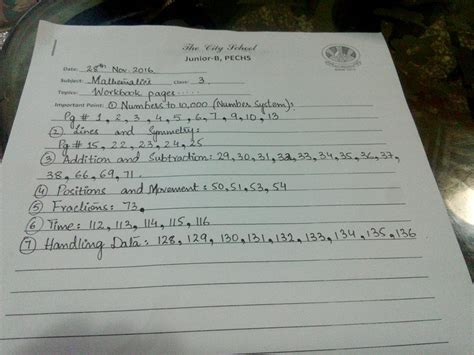 The City School
Junior-B, PECHS
Date: 28th Nov. 2016
Subject: Mathematics Class 3.
Topic: Workbook pages.....
Important Point: ① Numbers to 10,000 (Number System):
Pg # 1, 2, 3, 4, 5, 6, 7, 9, 10, 13
② Lines and Symmetry:
Pg # 15, 22, 23, 24, 25
③ Addition and Subtraction: 29, 30, 31, 32, 33, 34, 35, 36, 37,
38, 66, 69, 71.
④ Positions and Movement: 50, 51, 53, 54
⑤ Fractions: 73.
⑥ Time: 112, 113, 114, 115, 116
⑦ Handling Data: 128, 129, 130, 131, 132, 133, 134, 135, 136